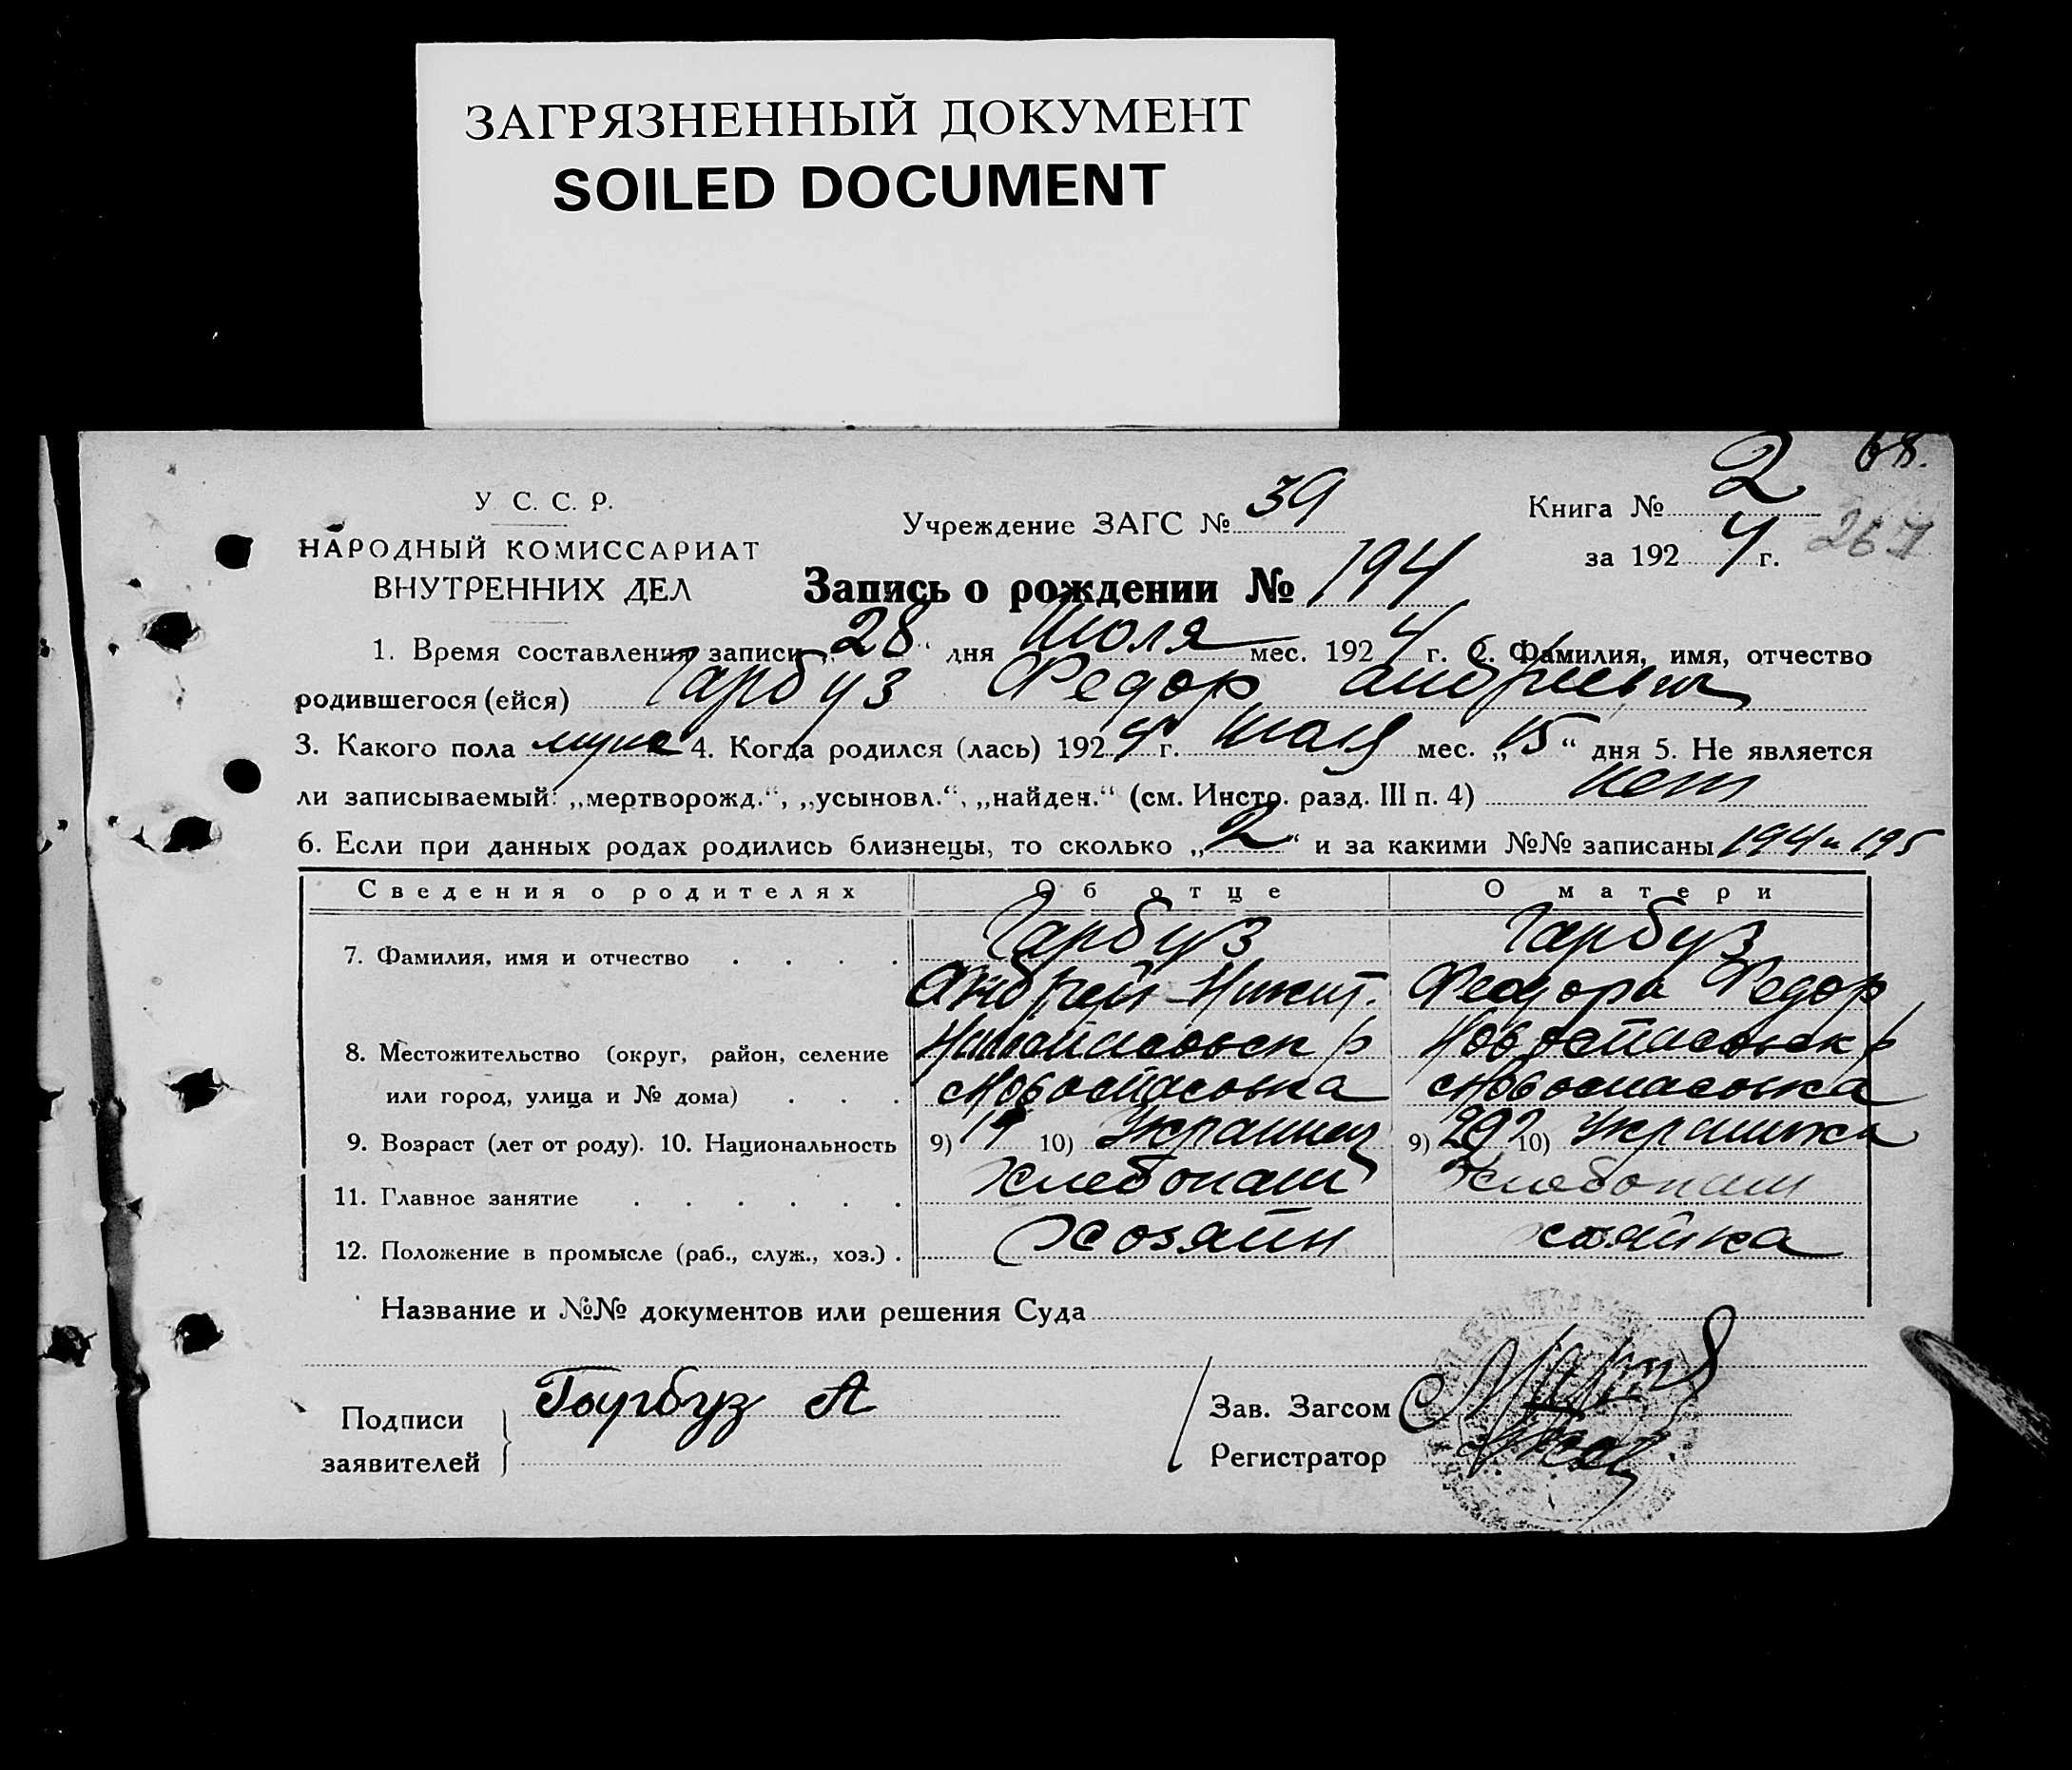 ЗАГРЯЗНЕННЫЙ ДОКУМЕНТ
SOILED DOCUMENT
68.
У. С. С. Р.
НАРОДНЫЙ КОМИССАРИАТ
ВНУТРЕННИХ ДЕЛ
Учреждение ЗАГС № 39
Книга № 2
за 1924 г. 267
Запись о рождении № 194
1. Время составления записи „28“ дня Июля мес. 1924 г. 2. Фамилия, имя, отчество
родившегося (ейся) Гарбуз Федор Андреевич
3. Какого пола муже 4. Когда родился (лась) 1924 г. Июля мес. „15“ дня 5. Не является
ли записываемый: „мертворожд.“, „усыновл.“, „найден.“ (см. Инстр. разд. III п. 4) нет
6. Если при данных родах родились близнецы, то сколько „2“ и за какими №№ записаны 194 и 195
Сведения о родителях Об отце О матери
7. Фамилия, имя и отчество . . . . Гарбуз Гарбуз
Андрей Никит. Феодора Федор
8. Местожительство (округ, район, селение Новоспасовск р Новоспасовск р
или город, улица и № дома) . . . Новоспасовка Новоспасовка
9. Возраст (лет от роду). 10. Национальность 9) 10) Украинец 9) 29 10) Украинка
11. Главное занятие . . . . . . Хлебопаш Хлебопаш
12. Положение в промысле (раб., служ., хоз.) . Хозяин хозяйка
Название и №№ документов или решения Суда
Подписи заявителей Гарбуз А
Зав. Загсом
Регистратор